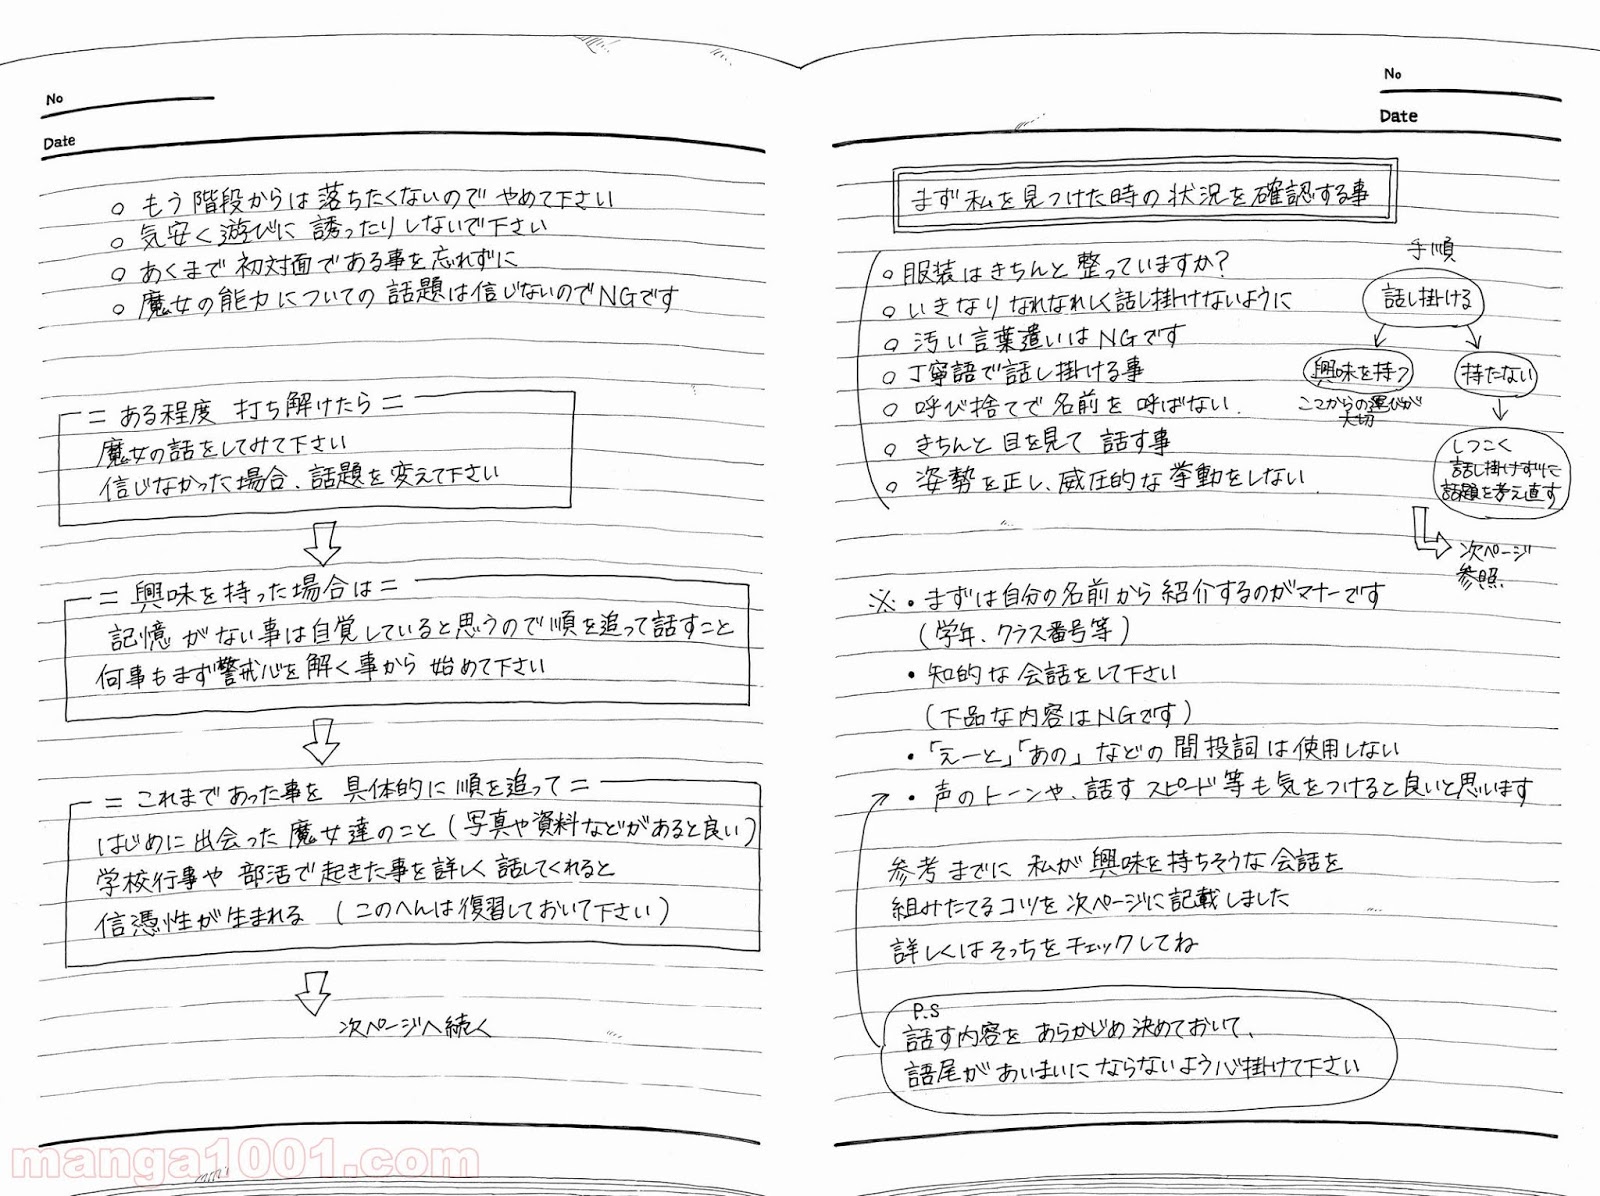 No
Date
まず私を見つけた時の状況を確認する事
○服装はきちんと整っていますか?
○いきなりなれなれしく話し掛けないように
○汚い言葉遣いはNGです
○丁寧語で話し掛ける事
○呼び捨てで名前を呼ばない.
○きちんと目を見て話す事
○姿勢を正し、威圧的な挙動をしない.
手順
話し掛ける
興味を持つ
ここからの運びが
大切
持たない
しつこく
話し掛けずに
話題を考え直す
次ページ
参照.
※・まずは自分の名前から紹介するのがマナーです
(学年、クラス番号等)
・知的な会話をして下さい
(下品な内容はNGです)
・「えーと」「あの」などの間投詞は使用しない
・声のトーンや、話すスピード等も気をつけると良いと思います
参考までに私が興味を持ちそうな会話を
組みたてるコツを次ページに記載しました
詳しくはそっちをチェックしてね
P.S
話す内容をあらかじめ決めておいて、
語尾があいまいにならないよう心掛けて下さい
No
Date
○もう階段からは落ちたくないのでやめて下さい
○気安く遊びに誘ったりしないで下さい
○あくまで初対面である事を忘れずに
○魔女の能力についての話題は信じないのでNGです
=ある程度打ち解けたら=
魔女の話をしてみて下さい
信じなかった場合、話題を変えて下さい
=興味を持った場合は=
記憶がない事は自覚していると思うので順を追って話すこと
何事もまず警戒心を解く事から始めて下さい
=これまであった事を具体的に順を追って=
はじめに出会った魔女達のこと(写真や資料などがあると良い)
学校行事や部活で起きた事を詳しく話してくれると
信憑性が生まれる(このへんは復習しておいて下さい)
次ページへ続く
manga1001.com